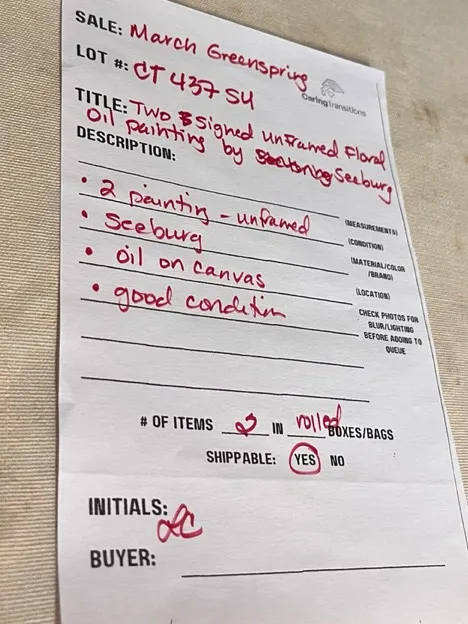 SALE: March Greenspring
LOT #: CT 437 SU
CaringTransitions
TITLE: Two Signed unframed Floral
Oil painting by Seeburg
DESCRIPTION:
• 2 painting - unframed
(MEASUREMENTS)
• Seeburg
(CONDITION)
• oil on canvas
(MATERIAL/COLOR
/BRAND)
• good condition
(LOCATION)
CHECK PHOTOS FOR
BLUR/LIGHTING
BEFORE ADDING TO
QUEUE
# OF ITEMS 2 IN rolled BOXES/BAGS
SHIPPABLE: YES NO
INITIALS: LC
BUYER: